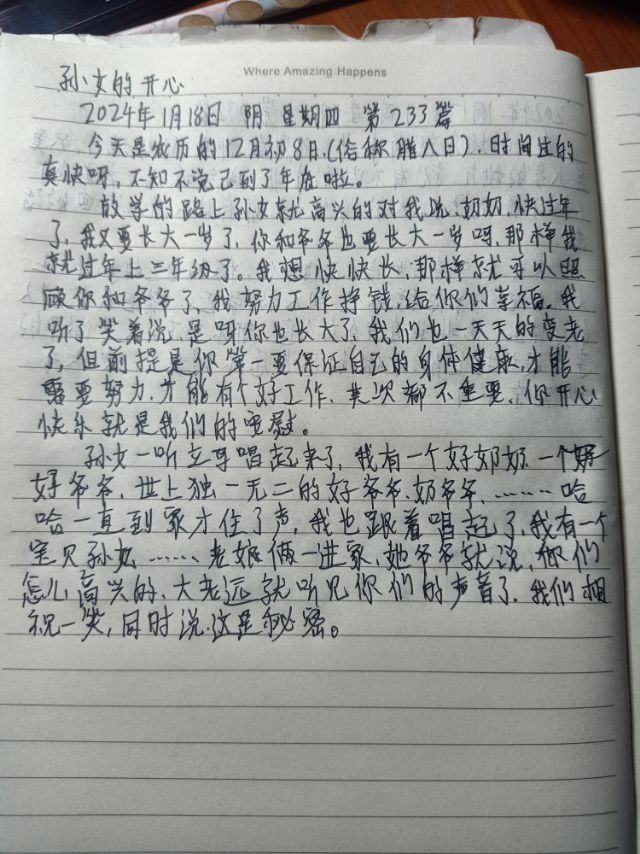 Where Amazing Happens
孙女的开心
2024年1月18日 阴 星期四 第233篇
今天是农历的12月初8日.(俗称腊八日).时间过的
真快呀,不知不觉已到了年底啦。
放学的路上孙女就高兴的对我说.奶奶.快过年
了,我又要长大一岁了,你和爷爷也要长大一岁吗.那样我
就过年上三年级了。我想快快长,那样就可以照
顾你和爷爷了,我努力工作挣钱.给你们幸福。我
听了笑着说.是呀你也长大了.我们也一天天的变老
了,但前提是你第一要保证自己的身体健康.才能
需要努力.才能有个好工作.其次都不重要.你开心
快乐就是我们的安慰。
孙女一听立马唱起来了,我有一个好奶奶.一个
好爷爷.世上独一无二的好爷爷.奶爷爷.……哈
哈一直到家才住了声,我也跟着唱起了.我有一个
宝贝孙女……老娘俩一进家.她爷爷就说.你们
怎么高兴的.大老远就听见你们的声音了.我们相
视一笑,同时说.这是秘密。